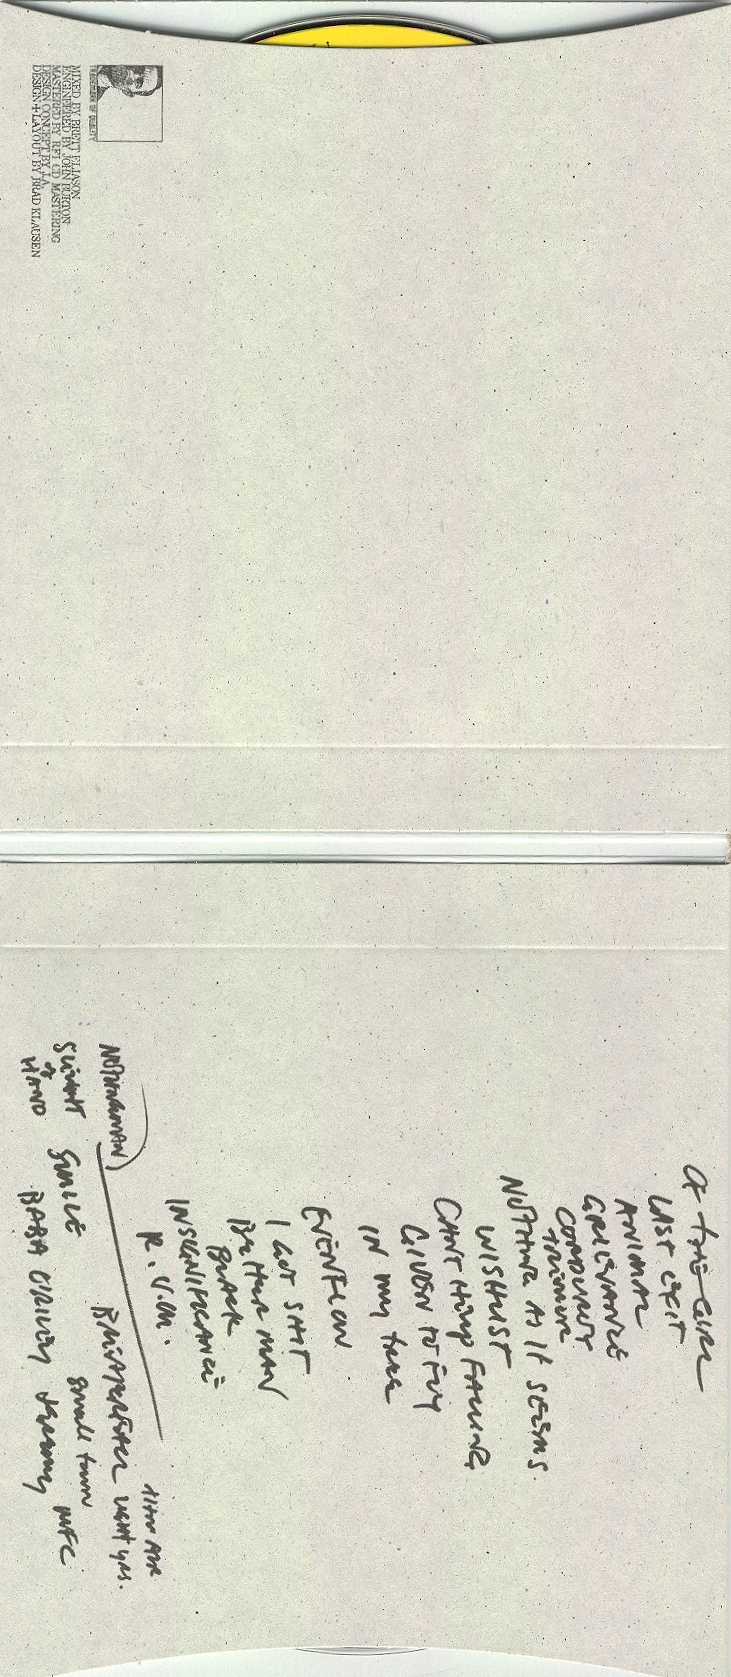 TRADEMARK OF QUALITY
MIXED BY BRETT ELIASON
ENGINEERED BY JOHN BURTON
MASTERED BY RFI CD MASTERING
DESIGN CONCEPT BY J.A.
DESIGN + LAYOUT BY BRAD KLAUSEN
OF THE GIRL
LAST EXIT
ANIMAL
GRIEVANCE
CORDUROY
NOTHING AS IT SEEMS.
WISHLIST
CANT HELP FALLING
GIVEN TO FLY
IN MY TREE
EVENFLOW
I GOT SHIT
BETTER MAN
BLACK
INSIGNIFICANCE
R.V.M.
NOTHINGMAN
BREAKERFALL LIGHT YRS.
small town
SLEIGHT OF HAND
SMILE
MFC
BABA O'RILEY